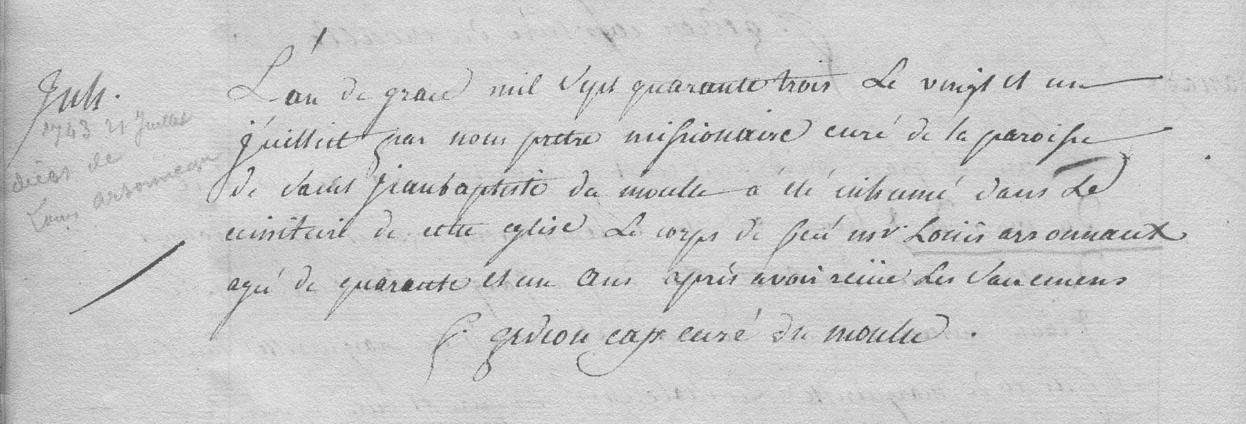 Juh.
1743 21 Juillet
décès de
Louis arsonneau
L'an de grace mil sept quarante trois Le vingt et un
juillict par nous pretre missionaire curé de la paroisse
de saint jeanbaptiste du moule a été inhumé dans Le
cimitaire de cette eglise Le corps de feu mr Louis arsonnaux
agé de quarante et un ans aprés avoir reçüe Les sacremens
f. gedeon cap curé du moule.